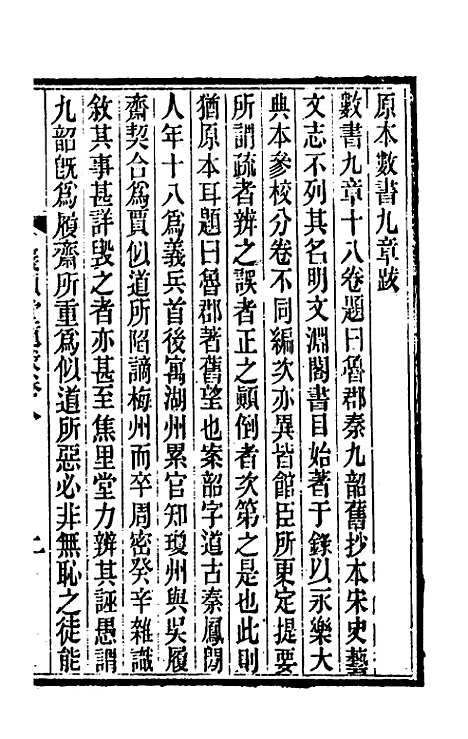 原本數書九章跋
數書九章十八卷題曰魯郡秦九韶舊抄本宋史藝
文志不列其名明文淵閣書目始著于錄以永樂大
典本參校分卷不同編次亦異皆館臣所更定提要
所謂疏者辨之誤者正之顚倒者次第之是也此則
猶原本耳題曰魯郡著舊望也案韶字道古秦鳳閒
人年十八爲義兵首後寓湖州累官知瓊州與吳履
齋契合爲賈似道所陷謫梅州而卒周密癸辛雜識
敘其事甚詳毀之者亦甚至焦里堂力辨其誣愚謂
九韶旣爲履齋所重爲似道所惡必非無恥之徒能